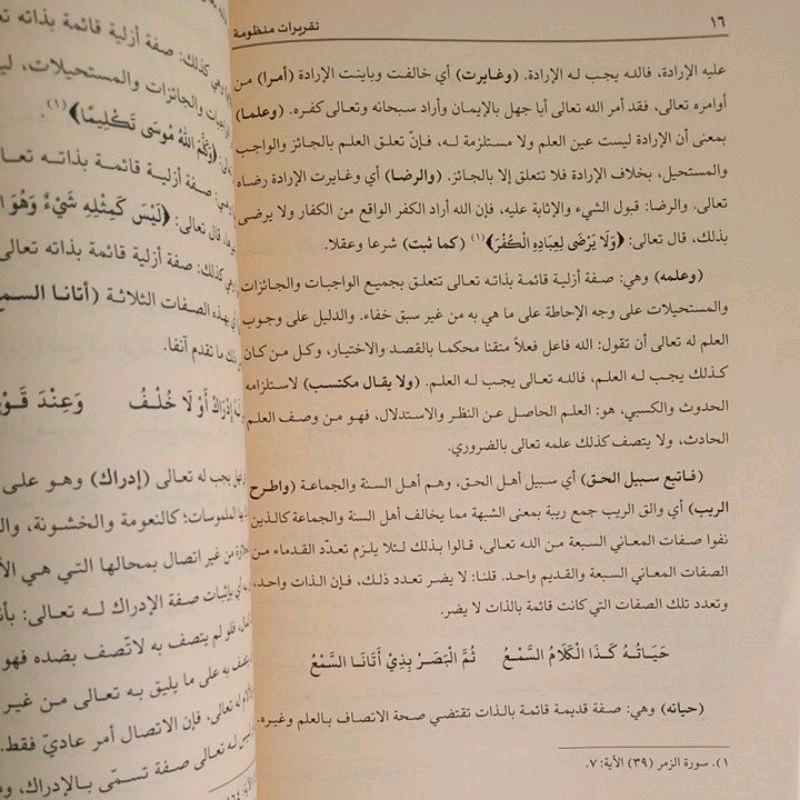 ١٦
تقريرات منظومة
عليه الإرادة، فالله يجب له الإرادة. (وغايرت) أي خالفت وباينت الإرادة (أمرا) من
أوامره تعالى، فقد أمر الله تعالى أبا جهل بالإيمان وأراد سبحانه وتعالى كفره. (وعلما)
بمعنى أن الإرادة ليست عين العلم ولا مستلزمة له، فإنّ تعلق العلم بالجائز والواجب
والمستحيل، بخلاف الإرادة فلا تتعلق إلا بالجائز. (والرضا) أي وغايرت الإرادة رضاه
تعالى. والرضا: قبول الشيء والإثابة عليه، فإن الله أراد الكفر الواقع من الكفار ولا يرضى
بذلك، قال تعالى: ﴿وَلَا يَرْضَى لِعِبَادِهِ الْكُفْرَ﴾(١) (كما ثبت) شرعا وعقلا.
(وعلمه) وهي: صفة أزلية قائمة بذاته تعالى تتعلق بجميع الواجبات والجائزات
والمستحيلات على وجه الإحاطة على ما هي به من غير سبق خفاء. والدليل على وجوب
العلم له تعالى أن تقول: الله فاعل فعلاً متقنا محكما بالقصد والاختيار، وكل من كان
كذلك يجب له العلم، فالله تعالى يجب له العلم. (ولا يقال مكتسب) لاستلزامه
الحدوث والكسبي، هو: العلم الحاصل عن النظر والاستدلال، فهو من وصف العلم
الحادث، ولا يتصف كذلك علمه تعالى بالضروري.
(فاتبع سبيل الحق) أي سبيل أهل الحق، وهم أهل السنة والجماعة (واطرح
الريب) أي والق الريب جمع ريبة بمعنى الشبهة مما يخالف أهل السنة والجماعة كالذين
نفوا صفات المعاني السبعة من الله تعالى، قالوا بذلك لئلا يلزم تعدّد القدماء من
الصفات المعاني السبعة والقديم واحد. قلنا: لا يضر تعدد ذلك، فإن الذات واحد،
وتعدد تلك الصفات التي كانت قائمة بالذات لا يضر.
حَيَاتُهُ كَذَا الْكَلَامُ السَّمْعُ ثُمَّ الْبَصَرْ بِذِيْ أَتَانَا السَّمْعُ
(حياته) وهي: صفة قديمة قائمة بالذات تقتضي صحة الاتصاف بالعلم وغيره.
١). سورة الزمر (٣٩) الآية: ٧.
وهي كذلك: صفة أزلية قائمة بذاته
الواجبات والجائزات والمستحيلات،
﴿وَكَلَّمَ اللهُ مُوسَى تَكْلِيمًا﴾(١).
صفة أزلية قائمة بذاته
قال تعالى: ﴿لَيْسَ كَمِثْلِهِ شَيْءٌ وَهُوَ
كذلك: صفة أزلية قائمة بذاته تعالى
بهذه الصفات الثلاثة (أتانا
ذلك ما تقدم آنفا.
إِدْرَاكٌ أَوْ لَا خُلْفُ وَعِنْدَ
يجب له تعالى (إدراك) وهو على
الملموسات؛ كالنعومة والخشونة،
من غير اتصال بمحالها التي هي
بإثبات صفة الإدراك له تعالى:
فلو لم يتصف به لاتّصف بضده فهو
به على ما يليق به تعالى من غير
له تعالى، فإن الاتصال أمر عاديّ فقط.
له تعالى صفة تسمّى بالإدراك،